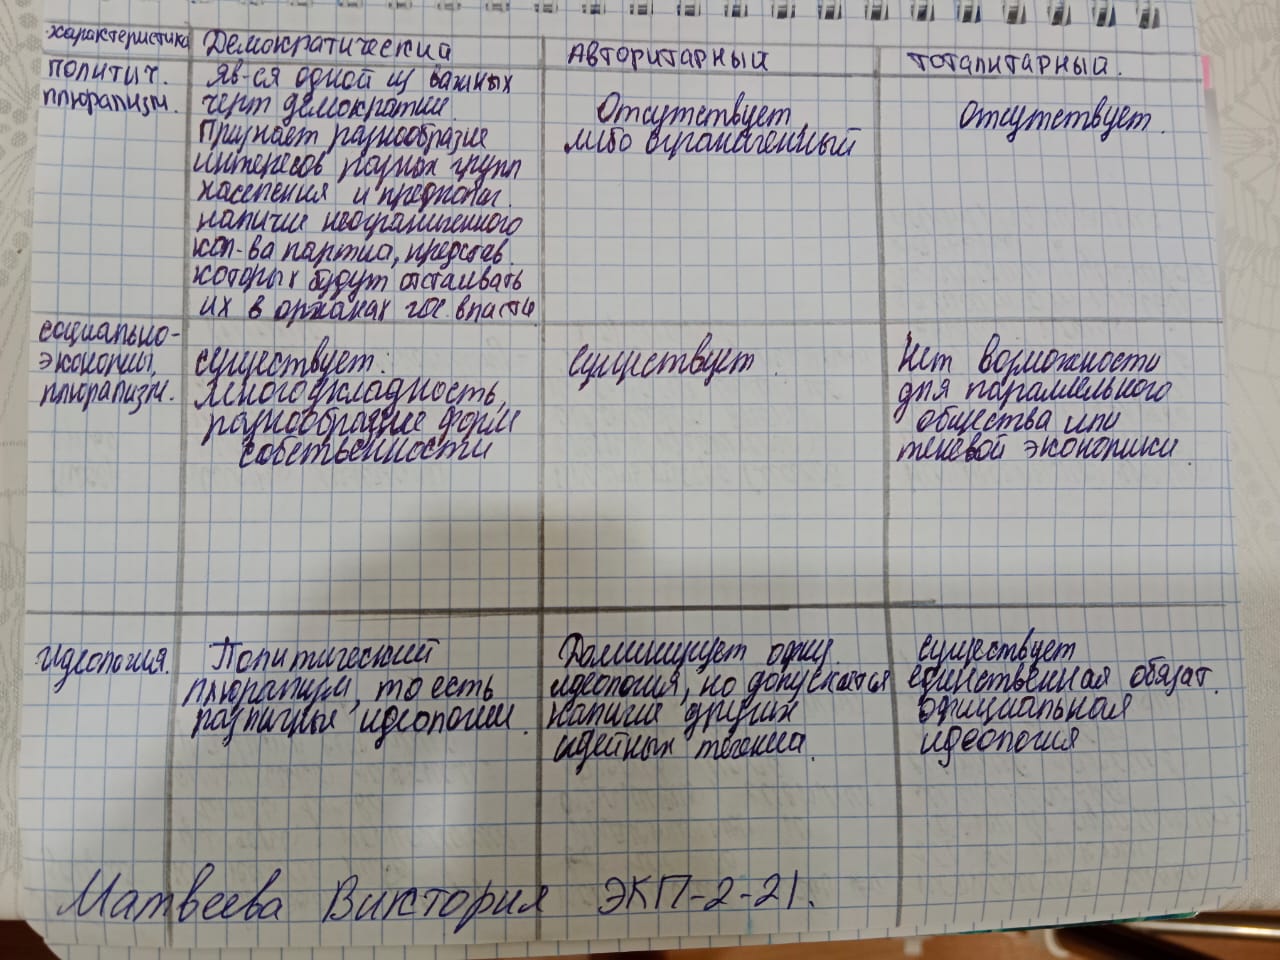 характеристика
Демократический
Авторитарный
Тоталитарный.
политич.
плюрализм.
яв-ся одной из важных
черт демократии.
Признает разнообразие
интересов разных групп
населения и предполаг.
наличие неограниченного
кол-ва партий, представ.
которых будут отстаивать
их в органах гос. власти
Отсутствует
либо ограниченный
отсутствует.
социально-
экономич.
плюрализм.
существует:
многоукладность,
разнообразие форм
собственности
существует.
Нет возможности
для параллельного
общества или
теневой экономики.
идеология.
Политический
плюрализм, то есть
различные идеологии.
Доминирует одна
идеология, но допускается
наличие других
идейных течений.
существует
единственная обязат.
официальная
идеология
Матвеева Виктория ЭКП-2-21.